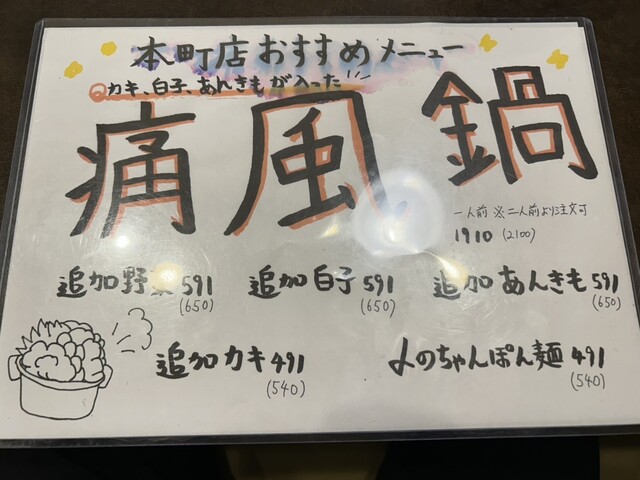 本町店おすすめメニュー
カキ、白子、あんきもが入った
痛風鍋
一人前 ※二人前より注文可
1910 (2100)
追加野菜591 追加白子591 追加あんきも591
(650) (650) (650)
追加カキ491 〆のちゃんぽん麺491
(540) (540)